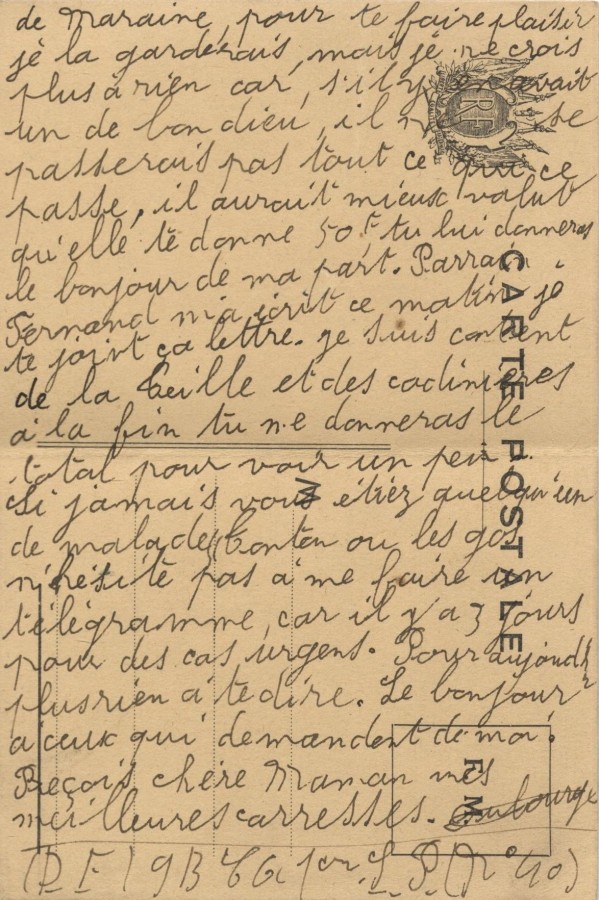 de Maraine, pour te faire plaisir
je la garderais, mais je ne crois
plus a rien car, s'il y en avait
un de bon dieu, il se
passerais pas tout ce qui ce
passe, il aurait mieux valut
qu'elle te donne 50F, tu lui donneras
le bonjour de ma part. Parrain
Fernand m'a écrit ce matin je
te joint ça lettre. je suis content
de la et des
a la fin tu me donneras le
total pour voir un peu.
Si jamais vous étiez quelqu'un
de malade, Tonton ou les gos
n'hésite pas a me faire un
télégramme, car il y a 3 jours
pour des cas, urgens. Pour aujourd'h
plus rien a te dire. Le bonjour
a ceux qui demandent de moi.
Reçois chère Maman mes
meilleures carresses.
RF
CARTE POSTALE
M
F. M.